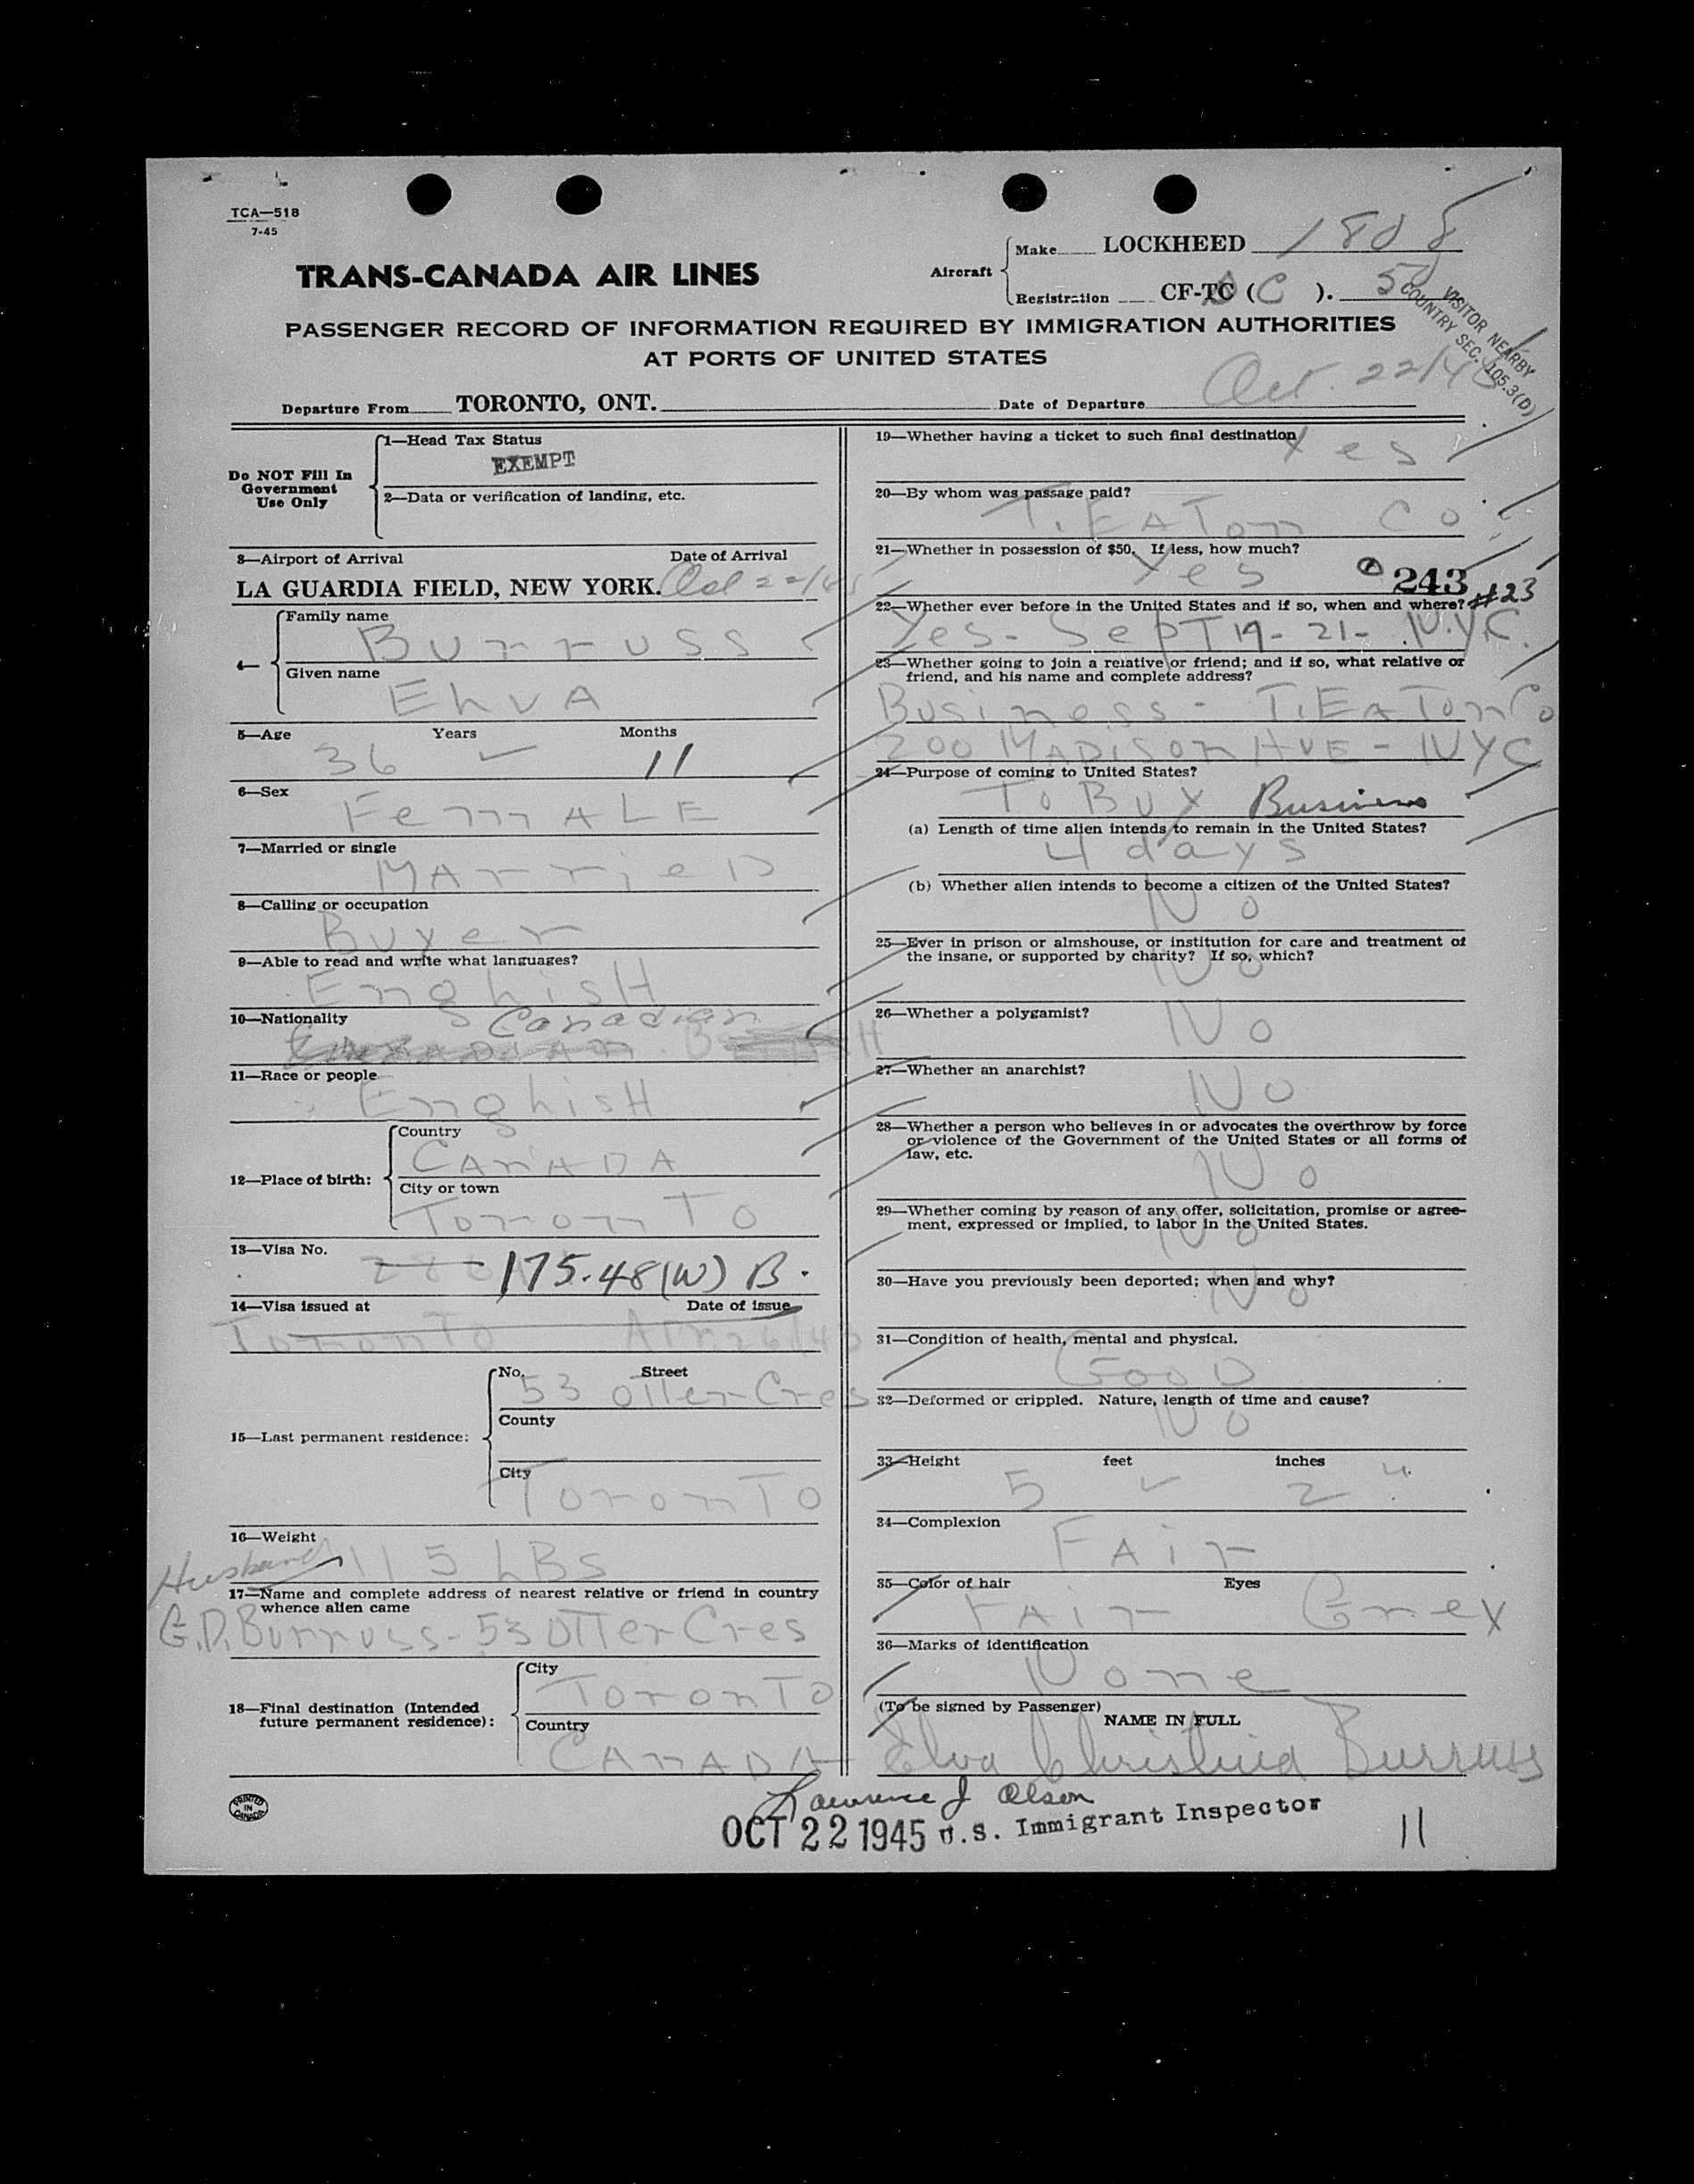 TCA—518
7-45
Aircraft
Make LOCKHEED 1808
Registration CF-TC ( C ). 50
TRANS-CANADA AIR LINES
VISITOR NEARBY
COUNTRY SEC. 105.3(D)
PASSENGER RECORD OF INFORMATION REQUIRED BY IMMIGRATION AUTHORITIES
AT PORTS OF UNITED STATES
Departure From TORONTO, ONT. Date of Departure Oct. 22/45
Do NOT Fill In
Government
Use Only
1—Head Tax Status
EXEMPT
2—Data or verification of landing, etc.
3—Airport of Arrival Date of Arrival
LA GUARDIA FIELD, NEW YORK. Oct 22/45
4— Family name
Burruss
Given name
ELVA
5—Age Years Months
36 11
6—Sex
FemALE
7—Married or single
MArrieD
8—Calling or occupation
Buyer
9—Able to read and write what languages?
EngLisH
10—Nationality
Canadian
CANADIAN
11—Race or people
EngLisH
12—Place of birth:
Country
CANADA
City or town
ToronTo
13—Visa No.
175.48(W) B.
14—Visa issued at Date of issue
ToronTo
15—Last permanent residence:
No. Street
53 Otter Cres
County
City
ToronTO
16—Weight
115 LBS
Husband
17—Name and complete address of nearest relative or friend in country
whence alien came
G.D. Burruss - 53 OTTer Cres
18—Final destination (Intended
future permanent residence):
City
ToronTO
Country
CAnADA
19—Whether having a ticket to such final destination
Yes
20—By whom was passage paid?
T. EATon Co.
21—Whether in possession of $50. If less, how much?
Yes
243
#23
22—Whether ever before in the United States and if so, when and where?
Yes - SepT 19 - 21 - N.Y.C.
23—Whether going to join a relative or friend; and if so, what relative or
friend, and his name and complete address?
Business - T. EATon Co
200 MADison AVE - NYC
24—Purpose of coming to United States?
To Buy Business
(a) Length of time alien intends to remain in the United States?
4 days
(b) Whether alien intends to become a citizen of the United States?
No
25—Ever in prison or almshouse, or institution for care and treatment of
the insane, or supported by charity? If so, which?
No
26—Whether a polygamist?
No
27—Whether an anarchist?
No
28—Whether a person who believes in or advocates the overthrow by force
or violence of the Government of the United States or all forms of
law, etc.
No
29—Whether coming by reason of any offer, solicitation, promise or agree-
ment, expressed or implied, to labor in the United States.
No
30—Have you previously been deported; when and why?
No
31—Condition of health, mental and physical.
GooD
32—Deformed or crippled. Nature, length of time and cause?
No
33—Height feet inches
5 2"
34—Complexion
FAir
35—Color of hair Eyes
FAir Grey
36—Marks of identification
None
(To be signed by Passenger)
NAME IN FULL
Elva Christina Burruss
PRINTED IN CANADA
Lawrence J Olson
OCT 22 1945 U.S. Immigrant Inspector
11